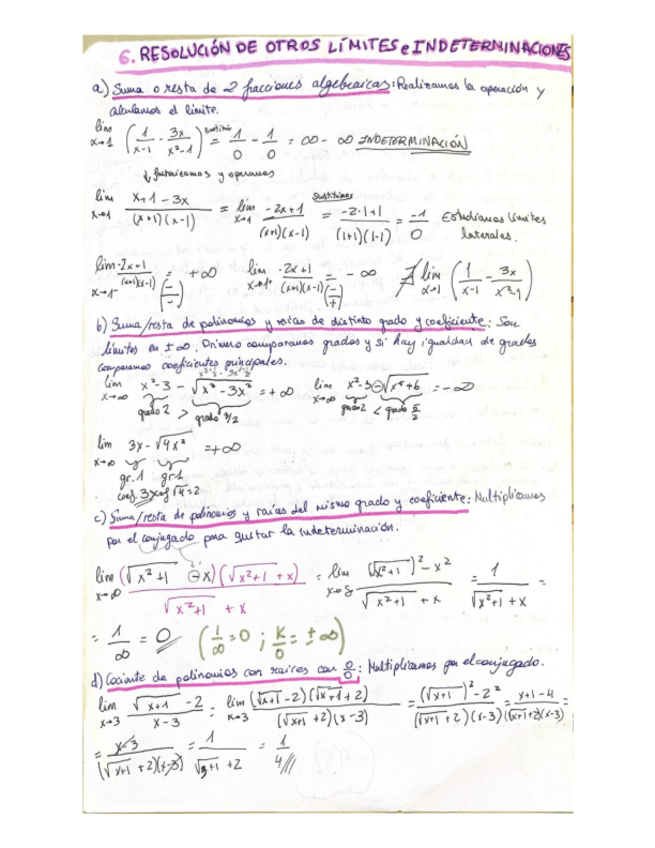 6. RESOLUCIÓN DE OTROS LÍMITES e INDETERMINACIONES
a) Suma o resta de 2 fracciones algebraicas: Realizamos la operación y
calculamos el límite.
lim x→1 (1/(x-1) - 3x/(x²-1)) = 1/0 - 1/0 = ∞ - ∞ INDETERMINACIÓN
↓ factorizamos y operamos
lim x→1 (x+1-3x)/((x+1)(x-1)) = lim x→1 (-2x+1)/((x+1)(x-1)) = Sustituimos (-2·1+1)/((1+1)(1-1)) = -1/0 Estudiamos límites
laterales.
lim x→1⁻ (-2x+1)/((x+1)(x-1)) (-/-) = +∞ lim x→1⁺ (-2x+1)/((x+1)(x-1)) (-/+) = -∞ ∄ lim x→1 (1/(x-1) - 3x/(x²-1))
b) Suma/resta de polinomios y raíces de distinto grado y coeficiente: Son
límites en ±∞. Primero comparamos grados y si hay igualdad de grados
comparamos coeficientes principales.
lim x→∞ x²-3 - √(x³-3x²) = +∞ lim x→∞ x²-3 - √(x⁵+6) = -∞
grado 2 > grado 3/2 grado 2 < grado 5/2
lim x→∞ 3x - √(4x²) = +∞
gr.1 gr.1
coef. 3 > coef √4=2
c) Suma/resta de polinomios y raíces del mismo grado y coeficiente: Multiplicamos
por el conjugado para quitar la indeterminación.
lim x→∞ (√(x²+1) - x)(√(x²+1) + x)/(√(x²+1) + x) = lim x→∞ ((√(x²+1))² - x²)/(√(x²+1) + x) = 1/(√(x²+1) + x) =
= 1/∞ = 0 (1/∞ = 0 ; K/0 = ±∞)
d) Cociente de polinomios con raíces con 0/0: Multiplicamos por el conjugado.
lim x→3 (√(x+1) - 2)/(x-3) = lim x→3 (√(x+1) - 2)(√(x+1) + 2)/((√(x+1) + 2)(x-3)) = ((√(x+1))² - 2²)/((√(x+1) + 2)(x-3)) = (x+1-4)/((√(x+1)+2)(x-3)) =
= (x-3)/((√(x+1) + 2)(x-3)) = 1/(√(3+1) + 2) = 1/4